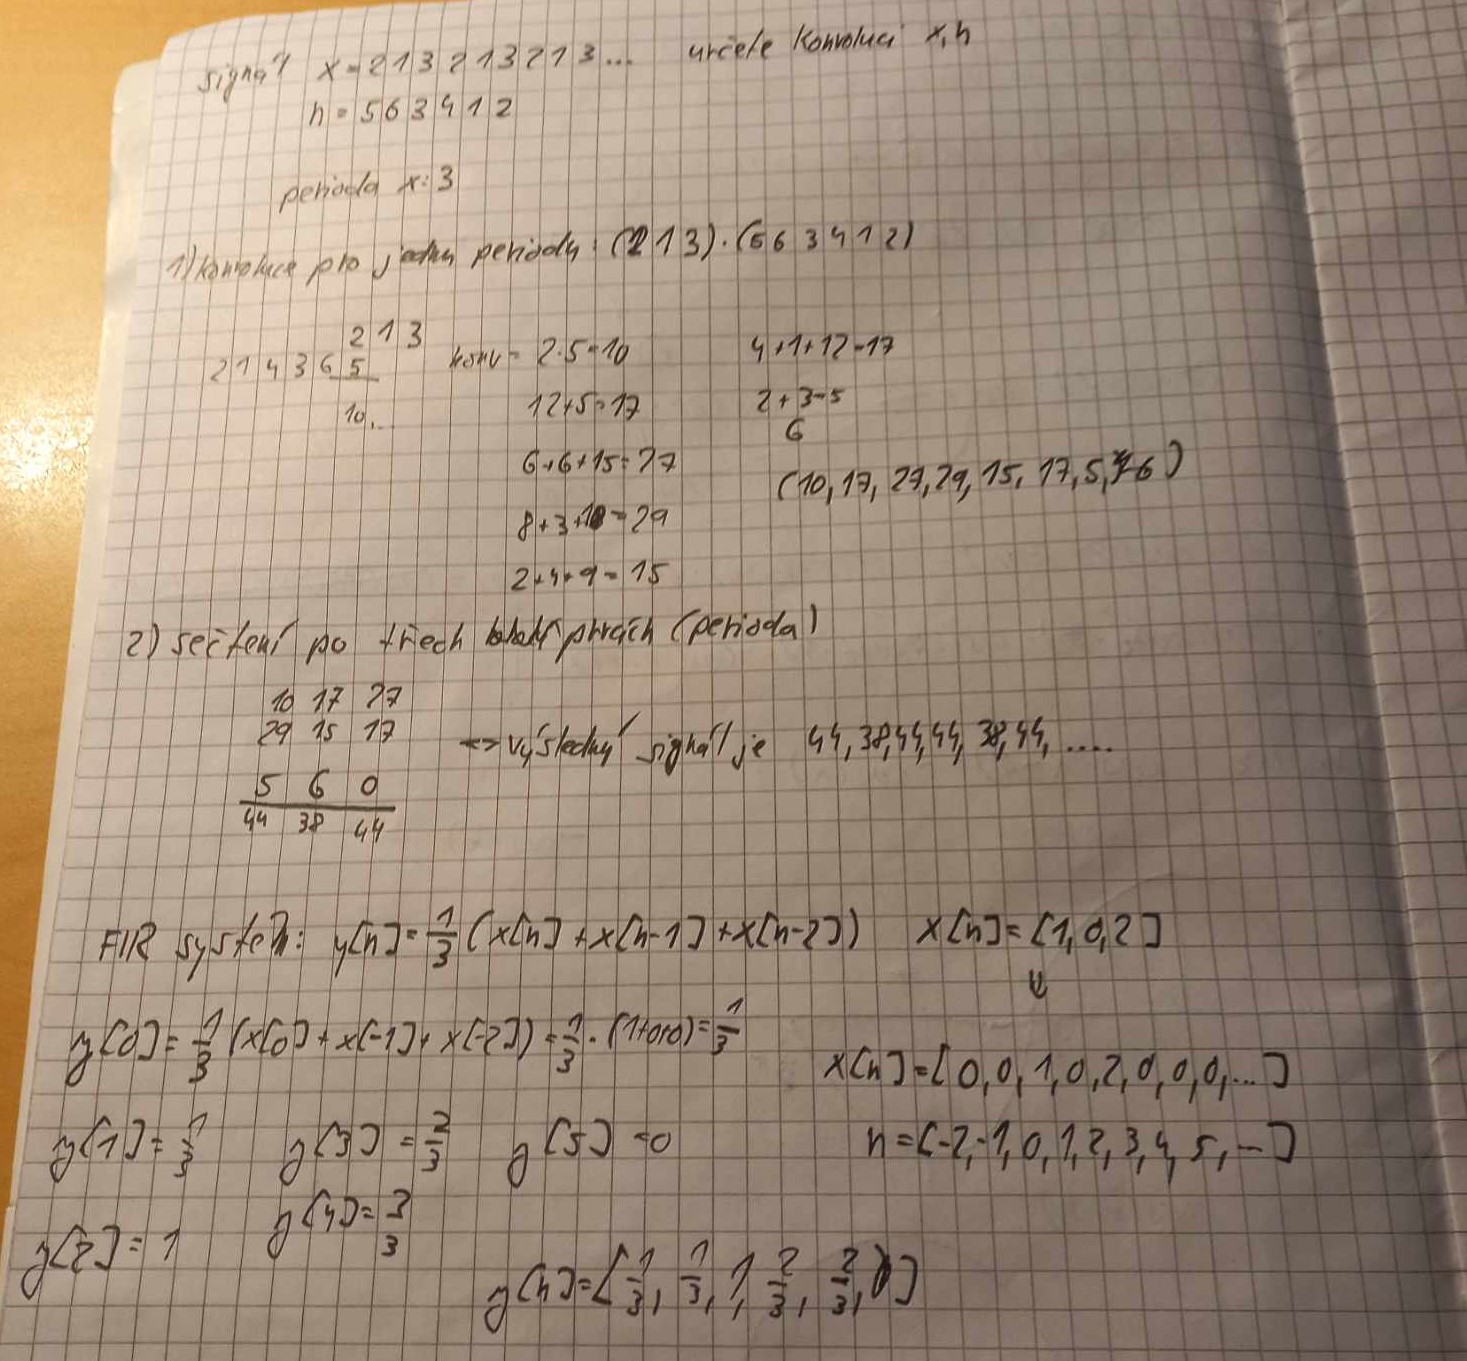 signál x = 2 1 3 2 1 3 2 1 3 ... určete konvoluci x, h
h = 5 6 3 4 1 2
perioda x: 3
1) konvoluce pro jednu periodu: (2 1 3) · (5 6 3 4 1 2)
2 1 3
2 1 4 3 6 5
10...
konv = 2·5=10
12+5=17
6+6+15=27
8+3+18=29
2+4+9=15
4+1+12=17
2+3=5
6
(10, 17, 27, 29, 15, 17, 5, 6)
2) sečtení po třech prvcích (perioda)
10 17 27
29 15 17
5 6 0
44 38 44
=> výsledný signál je 44, 38, 44, 44, 38, 44, ....
FIR systém: y[n] = 1/3 (x[n] + x[n-1] + x[n-2]) x[n] = [1, 0, 2]
⇓
y[0] = 1/3 (x[0] + x[-1] + x[-2]) = 1/3 · (1+0+0) = 1/3
x[n] = [0, 0, 1, 0, 2, 0, 0, 0, ...]
n = [-2, -1, 0, 1, 2, 3, 4, 5, ...]
y[1] = 1/3 y[3] = 2/3 y[5] = 0
y[2] = 1 y[4] = 3/3
y[n] = [1/3, 1/3, 1, 2/3, 2/3, 0]